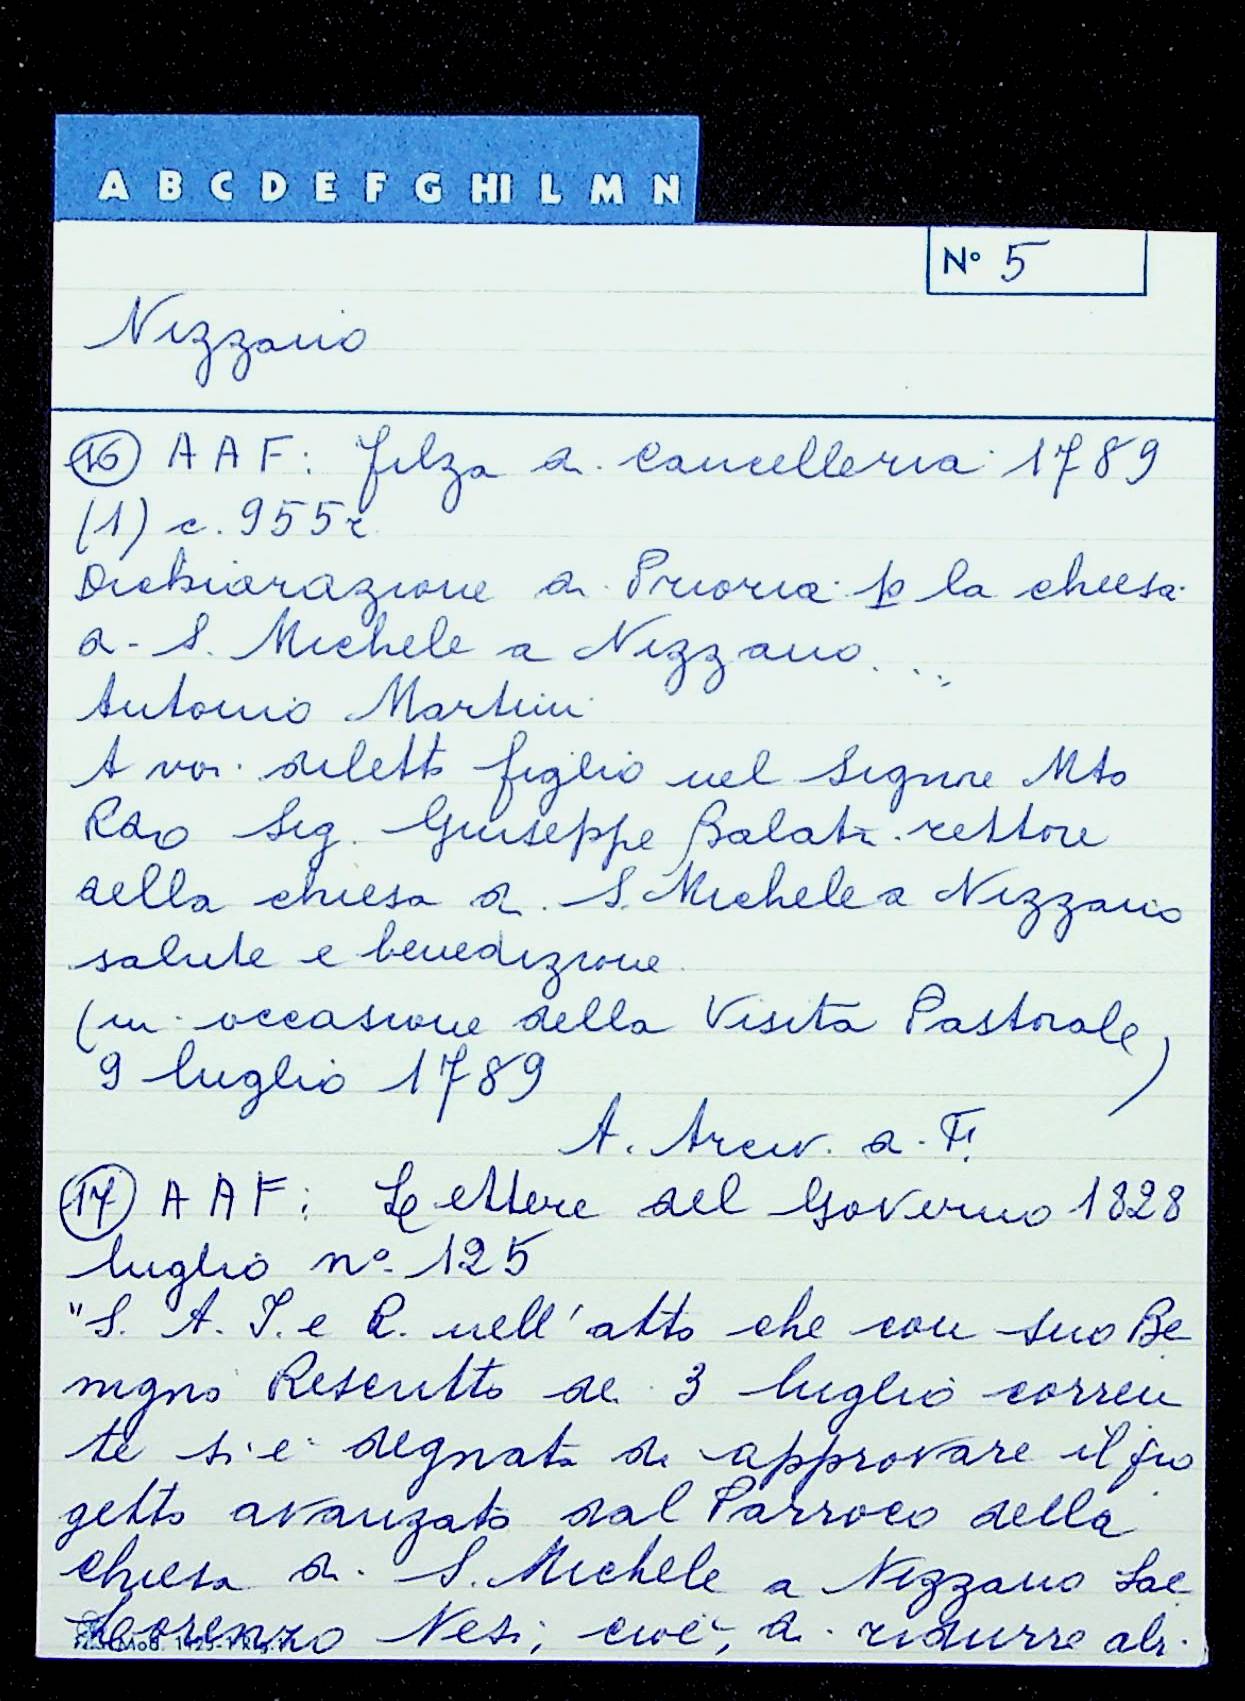 A B C D E F G HI L M N
N° 5
Nizzano
16 A A F: filza di Cancelleria 1789
(1) c. 955r
Dichiarazione di Prioria p la chiesa
di S. Michele a Nizzano....
Antonio Martini
A voi diletto figlio nel Signore Mto
Rdo Sig. Giuseppe Balati rettore
della chiesa di S. Michele a Nizzano
salute e benedizione
(in occasione della Visita Pastorale)
9 luglio 1789
A. Arciv. di F.
17 A A F: Lettere del Governo 1828
luglio n° 125
"S. A. I. e R. nell'atto che con suo Be
nigno Rescritto de 3 luglio corren
te si è degnata di approvare il pro
getto avanzato dal Parroco della
chiesa di S. Michele a Nizzano Sac
Lorenzo Nesi, cioè, di ridurre